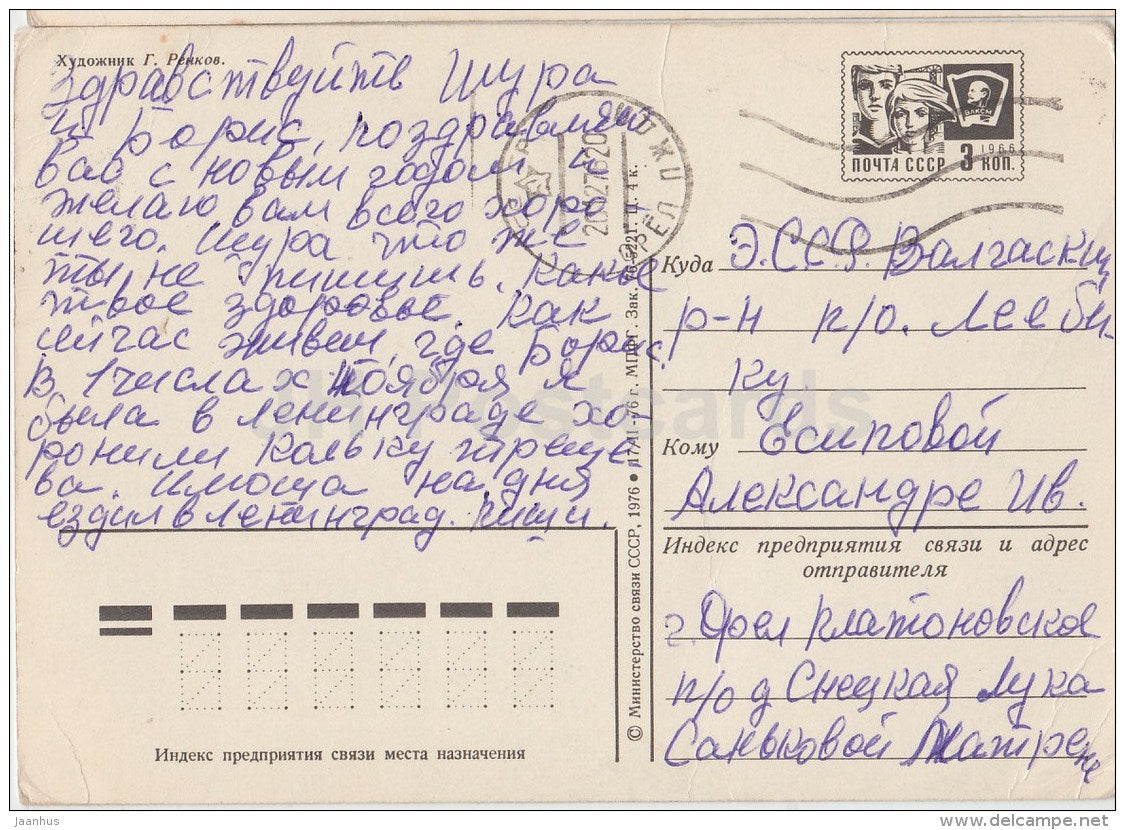 Художник Г. Ренков.
Здравствуйте Шура
и Борис, поздравляем
вас с новым годом
желаю вам всего хоро-
шего. Шура что же
ты не пишишь. Какое
твое здоровье как
сейчас живеш, где Борис.
В числах ноября я
была в Ленинграде хо-
ронили Кольку
на дня
ездил в Ленинград. пиши.
ПОЧТА СССР 3 КОП.
1966
ВЛКСМ
ОРЁЛ
Куда Э.С.С.Р. Валгаский
р-н п/о. Лееб*/*
ку
Кому Есиповой
Александре Ив.
Индекс предприятия связи и адрес
отправителя
г. Орел Платоновское
п/о д Снецкая Лука
Саньковой Матрене
© Министерство связи СССР, 1976 ● 17/VI-76 г. МПФГ. Зак. 76-5221. Ц. 4 к.
Индекс предприятия связи места назначения
JH Postcards
Jaanhus
delcampe.net